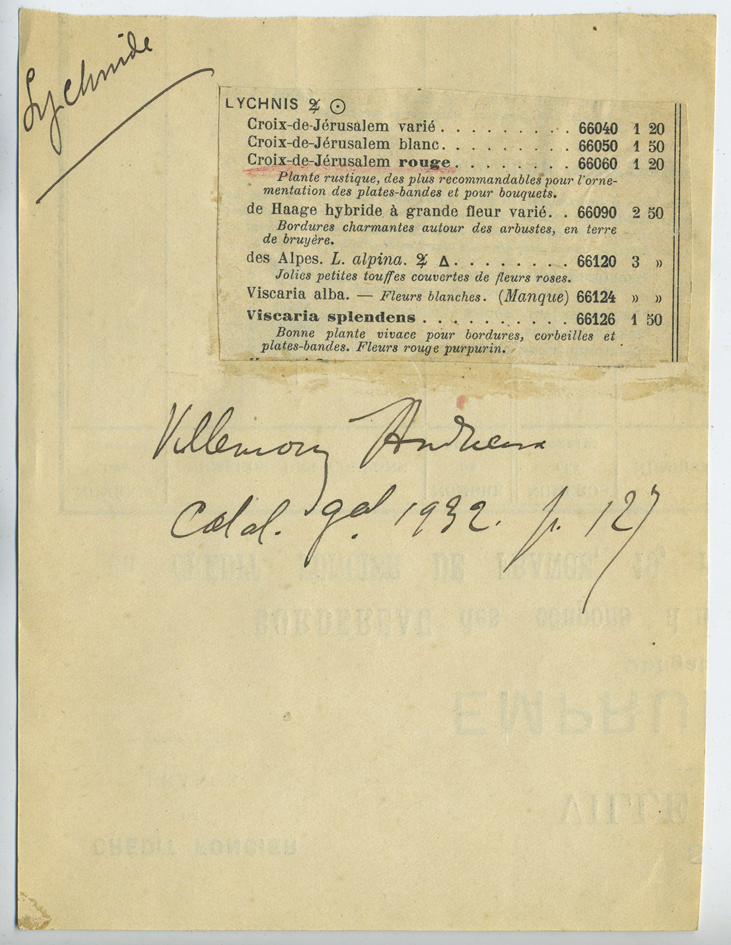 Lychnide
LYCHNIS ♃ ☉
Croix-de-Jérusalem varié. . . . . . . . . . 66040 1 20
Croix-de-Jérusalem blanc. . . . . . . . . . 66050 1 50
Croix-de-Jérusalem rouge. . . . . . . . . 66060 1 20
Plante rustique, des plus recommandables pour l'orne-
mentation des plates-bandes et pour bouquets.
de Haage hybride à grande fleur varié. . 66090 2 50
Bordures charmantes autour des arbustes, en terre
de bruyère.
des Alpes. L. alpina. ♃ Δ. . . . . . . . . 66120 3 »
Jolies petites touffes couvertes de fleurs roses.
Viscaria alba. — Fleurs blanches. (Manque) 66124 » »
Viscaria splendens . . . . . . . . . . . 66126 1 50
Bonne plante vivace pour bordures, corbeilles et
plates-bandes. Fleurs rouge purpurin.
Villemorin Andrieux
Catal. gal 1932. p. 127
EMPRU
VILLE
CREDIT FONCIER
BORDEREAU des coupons